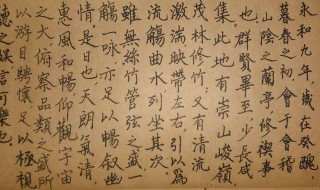 永和九年歲在癸醜
暮春之初會于會稽
山陰之蘭亭修禊事
也群賢畢至少長咸
集此地有崇山峻嶺
茂林修竹又有清流
激湍映帶左右引以為
流觴曲水列坐其次
雖無絲竹管弦之盛一
觴一咏亦足以暢叙幽
情是日也天朗氣清
惠風和暢仰觀宇宙
之大俯察品類之盛所
以游目騁懷足以極視
聽之娛信可樂也